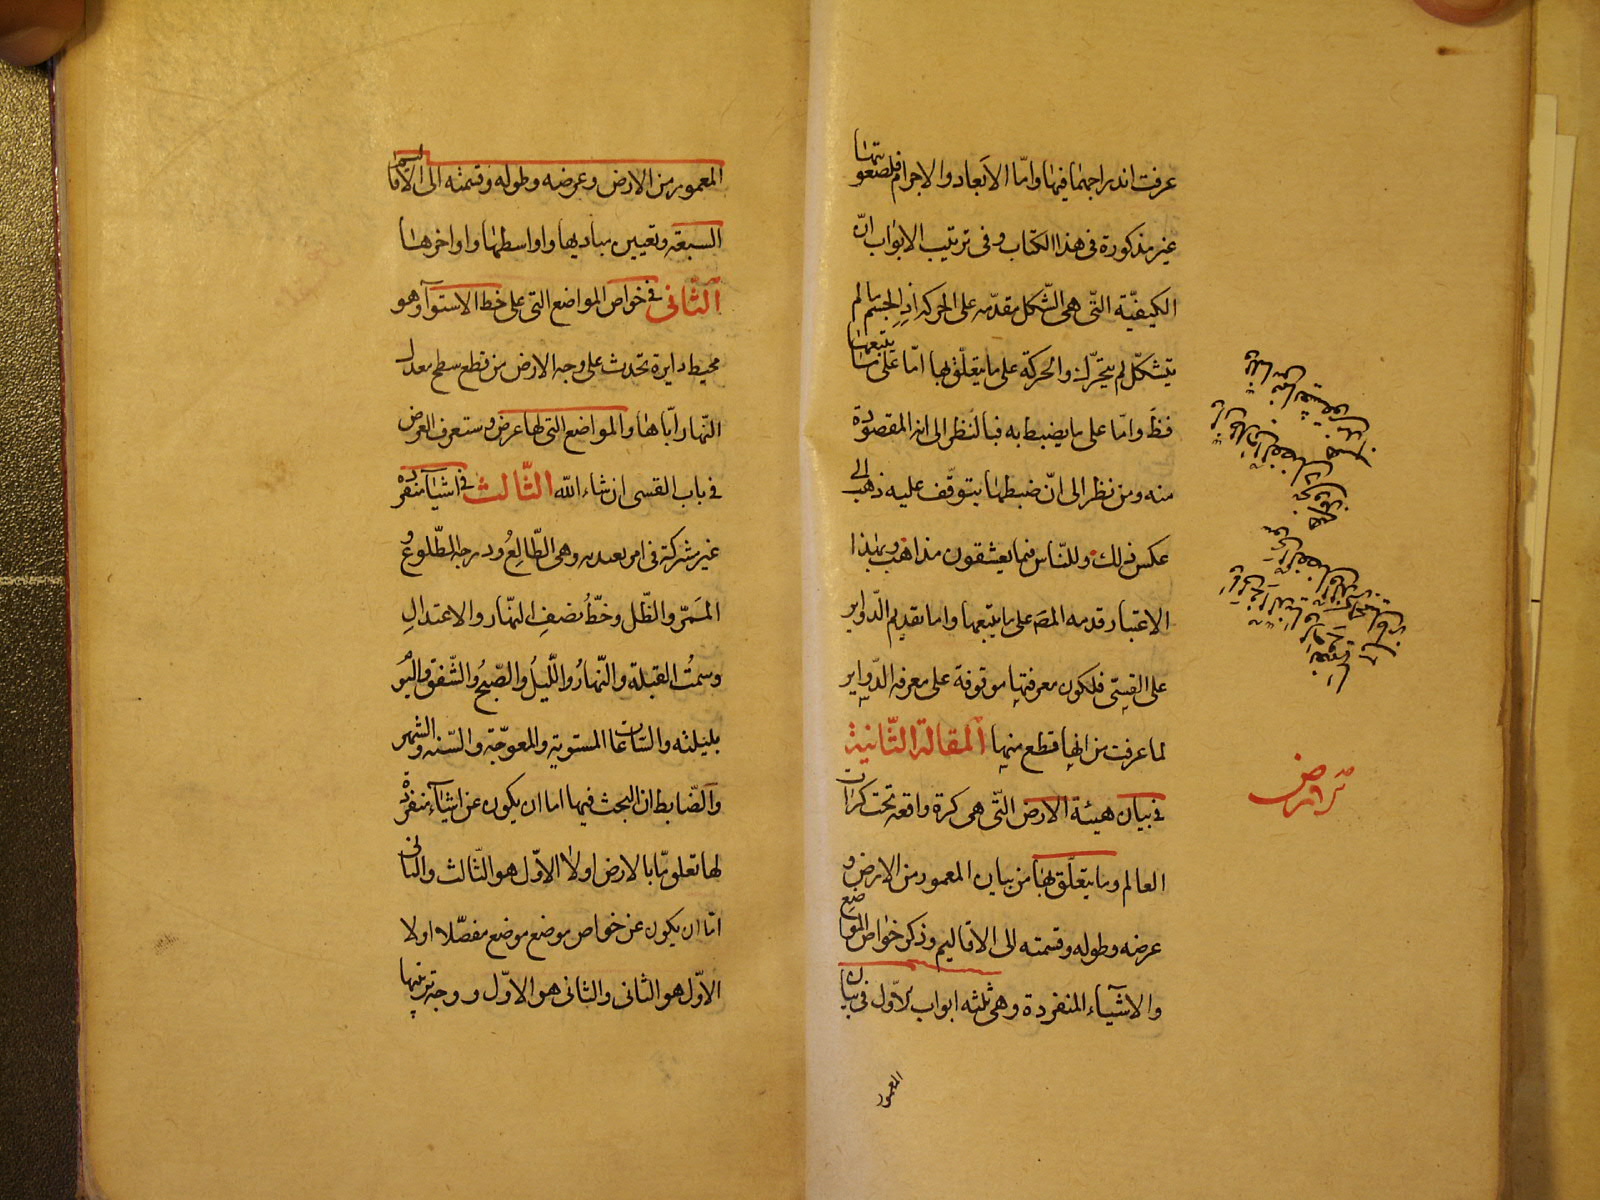 عرفت اندراجهما فيها واما الابعاد والاجرام فلصعوبتها
غير مذكورة في هذا الكتاب وفي ترتيب الابواب انّ
الكيفيّة التّي هي الشّكل مقدّمه على الحركه اذ الجسم ما لم
يتشكّل لم يتحرّك والحركة على ما يتعلّق بها امّا على ما يتبعها
فظَ وامّا على ما يضبط به فبالنظر الى انه المقصودة
منه ومن نظر الى انّ ضبطها يتوقّف عليه ذهب الى
عكس ذلك وللنّاس فيما يعشقون مذاهب وبهذا
الاعتبار قدمه المصَ على ما يتبعها واما تقديم الدّواير
على القسّى فلكون معرفتها موقوفة على معرفه الدّواير
لما عرفت من انها قطع منها المقالة الثّانية
في بيان هيئة الارض التّي هي كرة واقعه تحت كرات
العالم وما يتعلّق بها من بيان المعمور من الارض و
عرضه وطوله وقسمته الى الاقاليم وذكر خواص المواضع
والاشيآء المنفردة وهي ثلثه ابواب الاّول في بيان
المعمور
المعمور من الارض وعرضه وطوله وقسمته الى الاقاليم
السبعة وتعيين مباديها واواسطها واواخرها
الثّاني في خواص المواضع التي على خط الاستوآ وهو
محيط دايرة تحدث على وجه الارض من قطع سطح معدل
النّهار ايّاها والمواضع التي لها عرض وستعرف العرض
في باب القسى ان شاء الله الثّالث في اشيآء منفردة
غير مشركة في امر بعد به وهي الطّالِعُ ودرجه الطّلوعِ و
المَمَرّ والظّل وخطُّ نصفِ النّهار والاعتدالِ
وسمتُ القبلة والنّهارُ واللّيلُ والصّبحُ والشّفق واليوم
بليلته والسّاعات المستوية والمعوجّة والسّنه والشهر
والضّابط ان البحث فيها اما ان يكون عن اشيآء منفردة
لها تعلق ما بالارض اولا الاوّل هو الثّالث والثاني
امّا ان يكون عن خواص موضع موضع مفصّلا اولا
الاوّل هو الثاني والثاني هو الاوّل ووجه ترتيبها